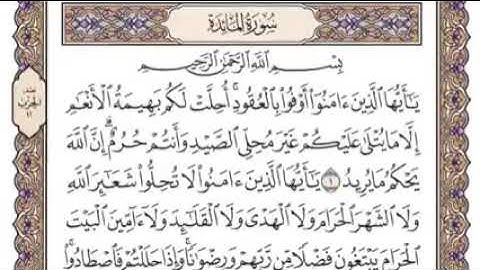 سُورَةُ المَائِدَةِ
بِسْمِ اللَّهِ الرَّحْمَٰنِ الرَّحِيمِ
يَٰٓأَيُّهَا ٱلَّذِينَ ءَامَنُوٓا۟ أَوْفُوا۟ بِٱلْعُقُودِ ۚ أُحِلَّتْ لَكُم بَهِيمَةُ ٱلْأَنْعَٰمِ
إِلَّا مَا يُتْلَىٰ عَلَيْكُمْ غَيْرَ مُحِلِّى ٱلصَّيْدِ وَأَنتُمْ حُرُمٌ ۗ إِنَّ ٱللَّهَ
يَحْكُمُ مَا يُرِيدُ ١ يَٰٓأَيُّهَا ٱلَّذِينَ ءَامَنُوا۟ لَا تُحِلُّوا۟ شَعَٰٓئِرَ ٱللَّهِ
وَلَا ٱلشَّهْرَ ٱلْحَرَامَ وَلَا ٱلْهَدْىَ وَلَا ٱلْقَلَٰٓئِدَ وَلَآ ءَآمِّينَ ٱلْبَيْتَ
ٱلْحَرَامَ يَبْتَغُونَ فَضْلًا مِّن رَّبِّهِمْ وَرِضْوَٰنًا ۚ وَإِذَا حَلَلْتُمْ فَٱصْطَادُوا۟ ۚ